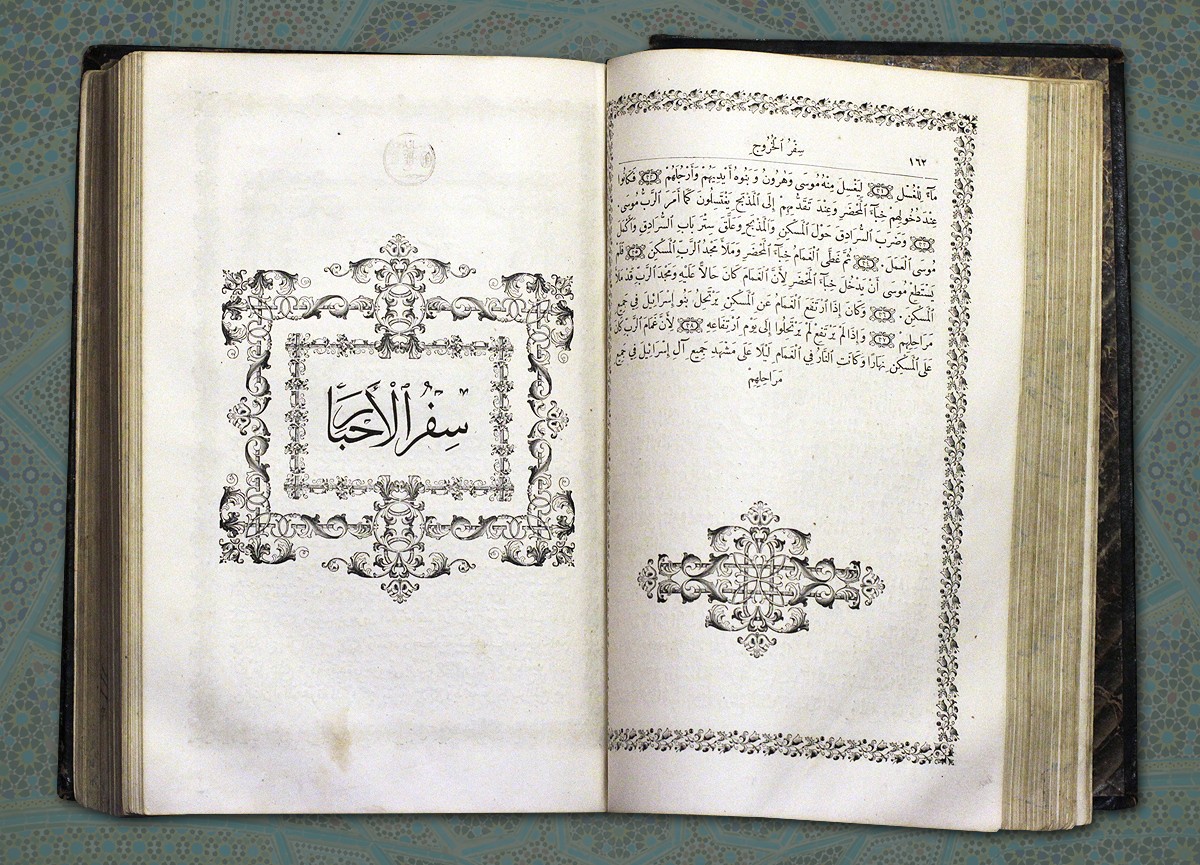 ١٦٢ سِفْرُ ٱلْخُرُوجِ
مآء للغُسْل ٣١ لِيَغْسِلَ مِنْهُ مُوسَى وَهٰرُونُ وَبَنُوهُ أَيْدِيَهُمْ وَأَرْجُلَهُمْ ٣٢ فَكَانُوا
عِنْدَ دُخُولِهِمْ خِبَآءَ ٱلْمَحْضَرِ وَعِنْدَ تَقَدُّمِهِمْ إِلَى ٱلْمَذْبَحِ يَغْتَسِلُونَ كَمَا أَمَرَ ٱلرَّبُّ مُوسَى.
٣٣ وَضَرَبَ ٱلسُّرَادِقَ حَوْلَ ٱلْمَسْكِنِ وَٱلْمَذْبَحِ وَعَلَّقَ سِتْرَ بَابِ ٱلسُّرَادِقِ وَأَكْمَلَ
مُوسَى ٱلْعَمَلَ. ٣٤ ثُمَّ غَطَّى ٱلْغَمَامُ خِبَآءَ ٱلْمَحْضَرِ وَمَلَأَ مَجْدُ ٱلرَّبِّ ٱلْمَسْكِنَ ٣٥ فَلَمْ
يَسْتَطِعْ مُوسَى أَنْ يَدْخُلَ خِبَآءَ ٱلْمَحْضَرِ لِأَنَّ ٱلْغَمَامَ كَانَ حَالًّا عَلَيْهِ وَمَجْدَ ٱلرَّبِّ قَدْ مَلَأَ
ٱلْمَسْكِنَ. ٣٦ وَكَانَ إِذَا ٱرْتَفَعَ ٱلْغَمَامُ عَنِ ٱلْمَسْكِنِ يَرْتَحِلُ بَنُو إِسْرَائِيلَ فِي جَمِيعِ
مَرَاحِلِهِمْ ٣٧ وَإِذَا لَمْ يَرْتَفِعْ لَمْ يَرْتَحِلُوا إِلَى يَوْمِ ٱرْتِفَاعِهِ ٣٨ لِأَنَّ غَمَامَ ٱلرَّبِّ كَانَ
عَلَى ٱلْمَسْكِنِ نَهَارًا وَكَانَتِ ٱلنَّارُ فِي ٱلْغَمَامِ لَيْلًا عَلَى مَشْهَدِ جَمِيعِ آلِ إِسْرَائِيلَ فِي جَمِيعِ
مَرَاحِلِهِمْ
سِفْرُ ٱلْأَحْبَارِ